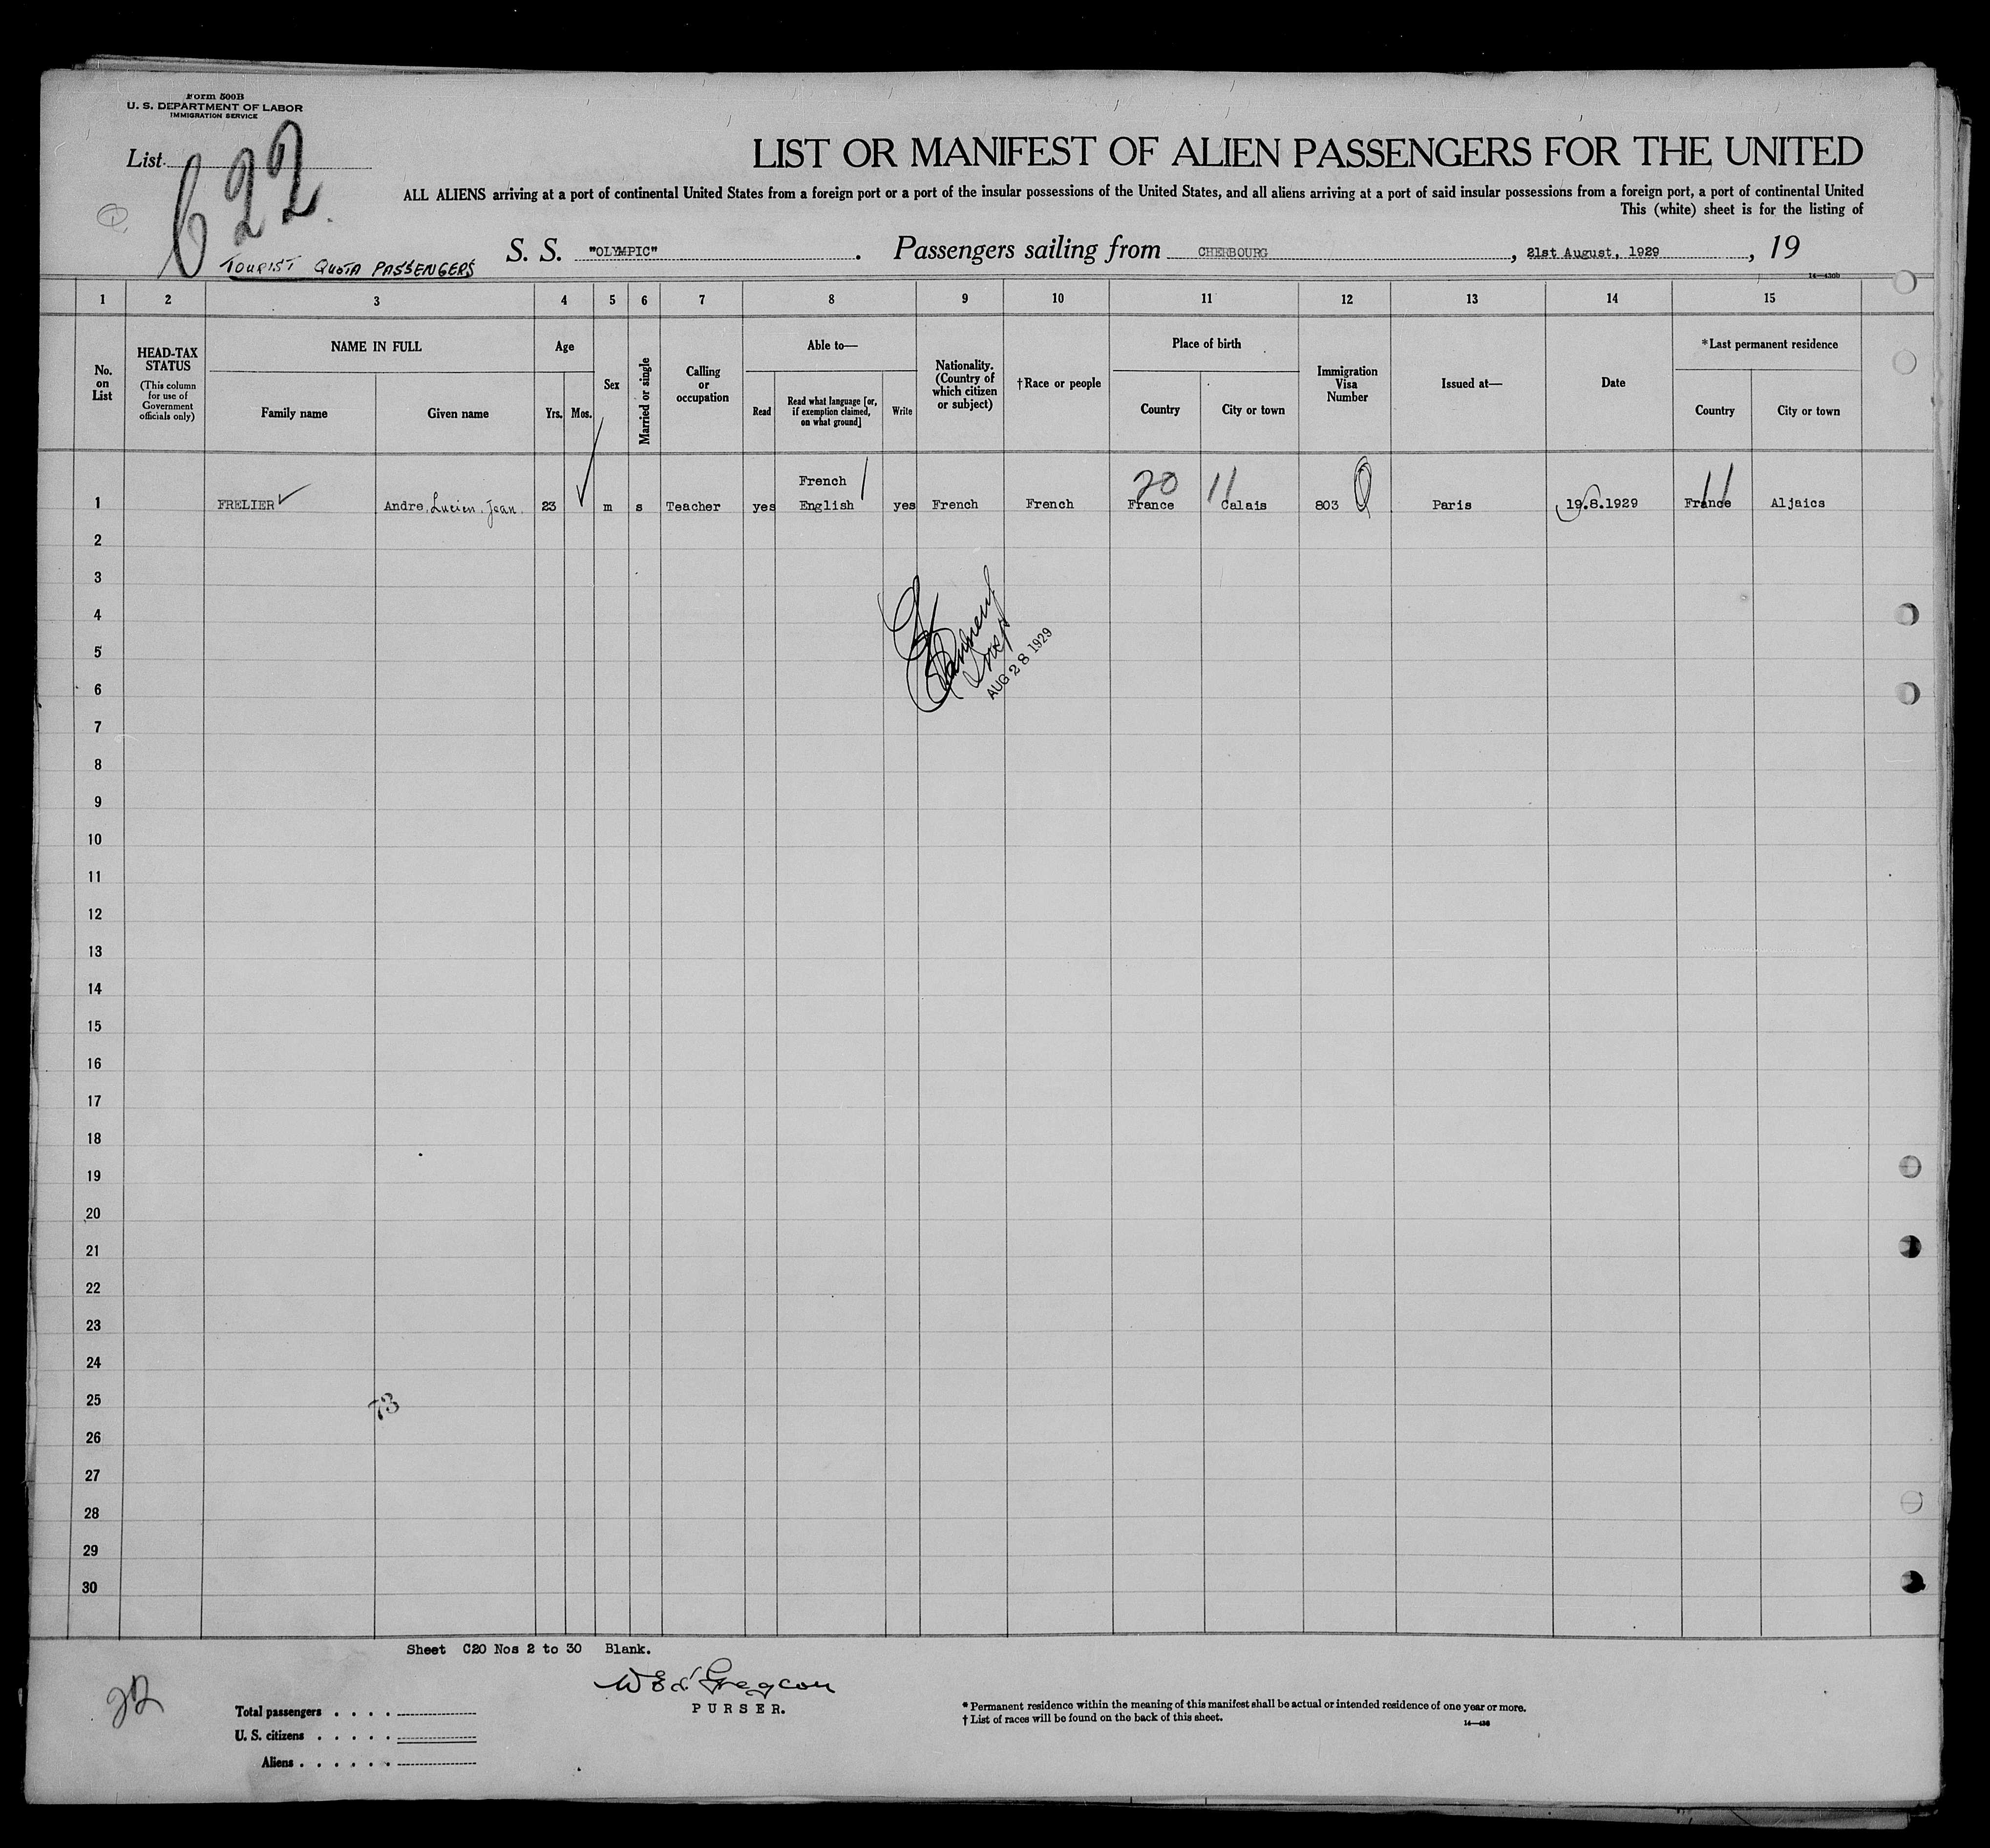 Form 500B
U. S. DEPARTMENT OF LABOR
IMMIGRATION SERVICE
List
622
LIST OR MANIFEST OF ALIEN PASSENGERS FOR THE UNITED
ALL ALIENS arriving at a port of continental United States from a foreign port or a port of the insular possessions of the United States, and all aliens arriving at a port of said insular possessions from a foreign port, a port of continental United
This (white) sheet is for the listing of
TOURIST QUOTA PASSENGERS
S. S. "OLYMPIC". Passengers sailing from CHERBOURG, 21st August, 1929, 19
14—430b
1 2 3 4 5 6 7 8 9 10 11 12 13 14 15
No. on List
HEAD-TAX STATUS
(This column for use of Government officials only)
NAME IN FULL
Family name
Given name
Age
Yrs. Mos.
Sex
Married or single
Calling or occupation
Able to—
Read
Read what language [or, if exemption claimed, on what ground]
Write
Nationality. (Country of which citizen or subject)
†Race or people
Place of birth
Country
City or town
Immigration Visa Number
Issued at—
Date
*Last permanent residence
Country
City or town
French
20 11 11
1 FRELIER Andre, Lucien. Jean. 23 m s Teacher yes English yes French French France Calais 803 Paris 19.8.1929 France Aljaics
2
3
4
5
AUG 28 1929
6
7
8
9
10
11
12
13
14
15
16
17
18
19
20
21
22
23
24
25
73
26
27
28
29
30
Sheet C20 Nos 2 to 30 Blank.
PURSER.
22
Total passengers . . . .
U. S. citizens . . . . .
Aliens . . . . . .
* Permanent residence within the meaning of this manifest shall be actual or intended residence of one year or more.
† List of races will be found on the back of this sheet.
14—430